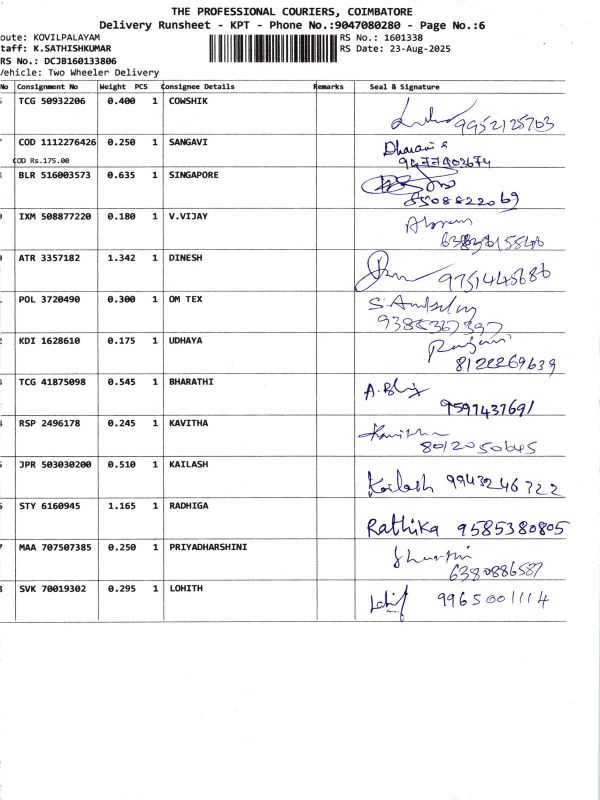 THE PROFESSIONAL COURIERS, COIMBATORE
Delivery Runsheet - KPT - Phone No.:9047080280 - Page No.:6
oute: KOVILPALAYAM
RS No.: 1601338
taff: K.SATHISHKUMAR
RS Date: 23-Aug-2025
RS No.: DCJB160133806
ehicle: Two Wheeler Delivery
No Consignment No Weight PCS Consignee Details Remarks Seal & Signature
TCG 50932206 0.400 1 COWSHIK
9952125703
COD 1112276426 0.250 1 SANGAVI
Dharani S
COD Rs.175.00
BLR 516003573 0.635 1 SINGAPORE
8508822069
IXM 508877220 0.180 1 V.VIJAY
ATR 3357182 1.342 1 DINESH
9751445686
POL 3720490 0.300 1 OM TEX
9385367397
KDI 1628610 0.175 1 UDHAYA
8122269639
TCG 41875098 0.545 1 BHARATHI
9597437691
RSP 2496178 0.245 1 KAVITHA
Kavitha
8012050645
JPR 503030200 0.510 1 KAILASH
Kailash 9943246322
STY 6160945 1.165 1 RADHIGA
Rathika 9585380805
MAA 707507385 0.250 1 PRIYADHARSHINI
6380886587
SVK 70019302 0.295 1 LOHITH
9965001114